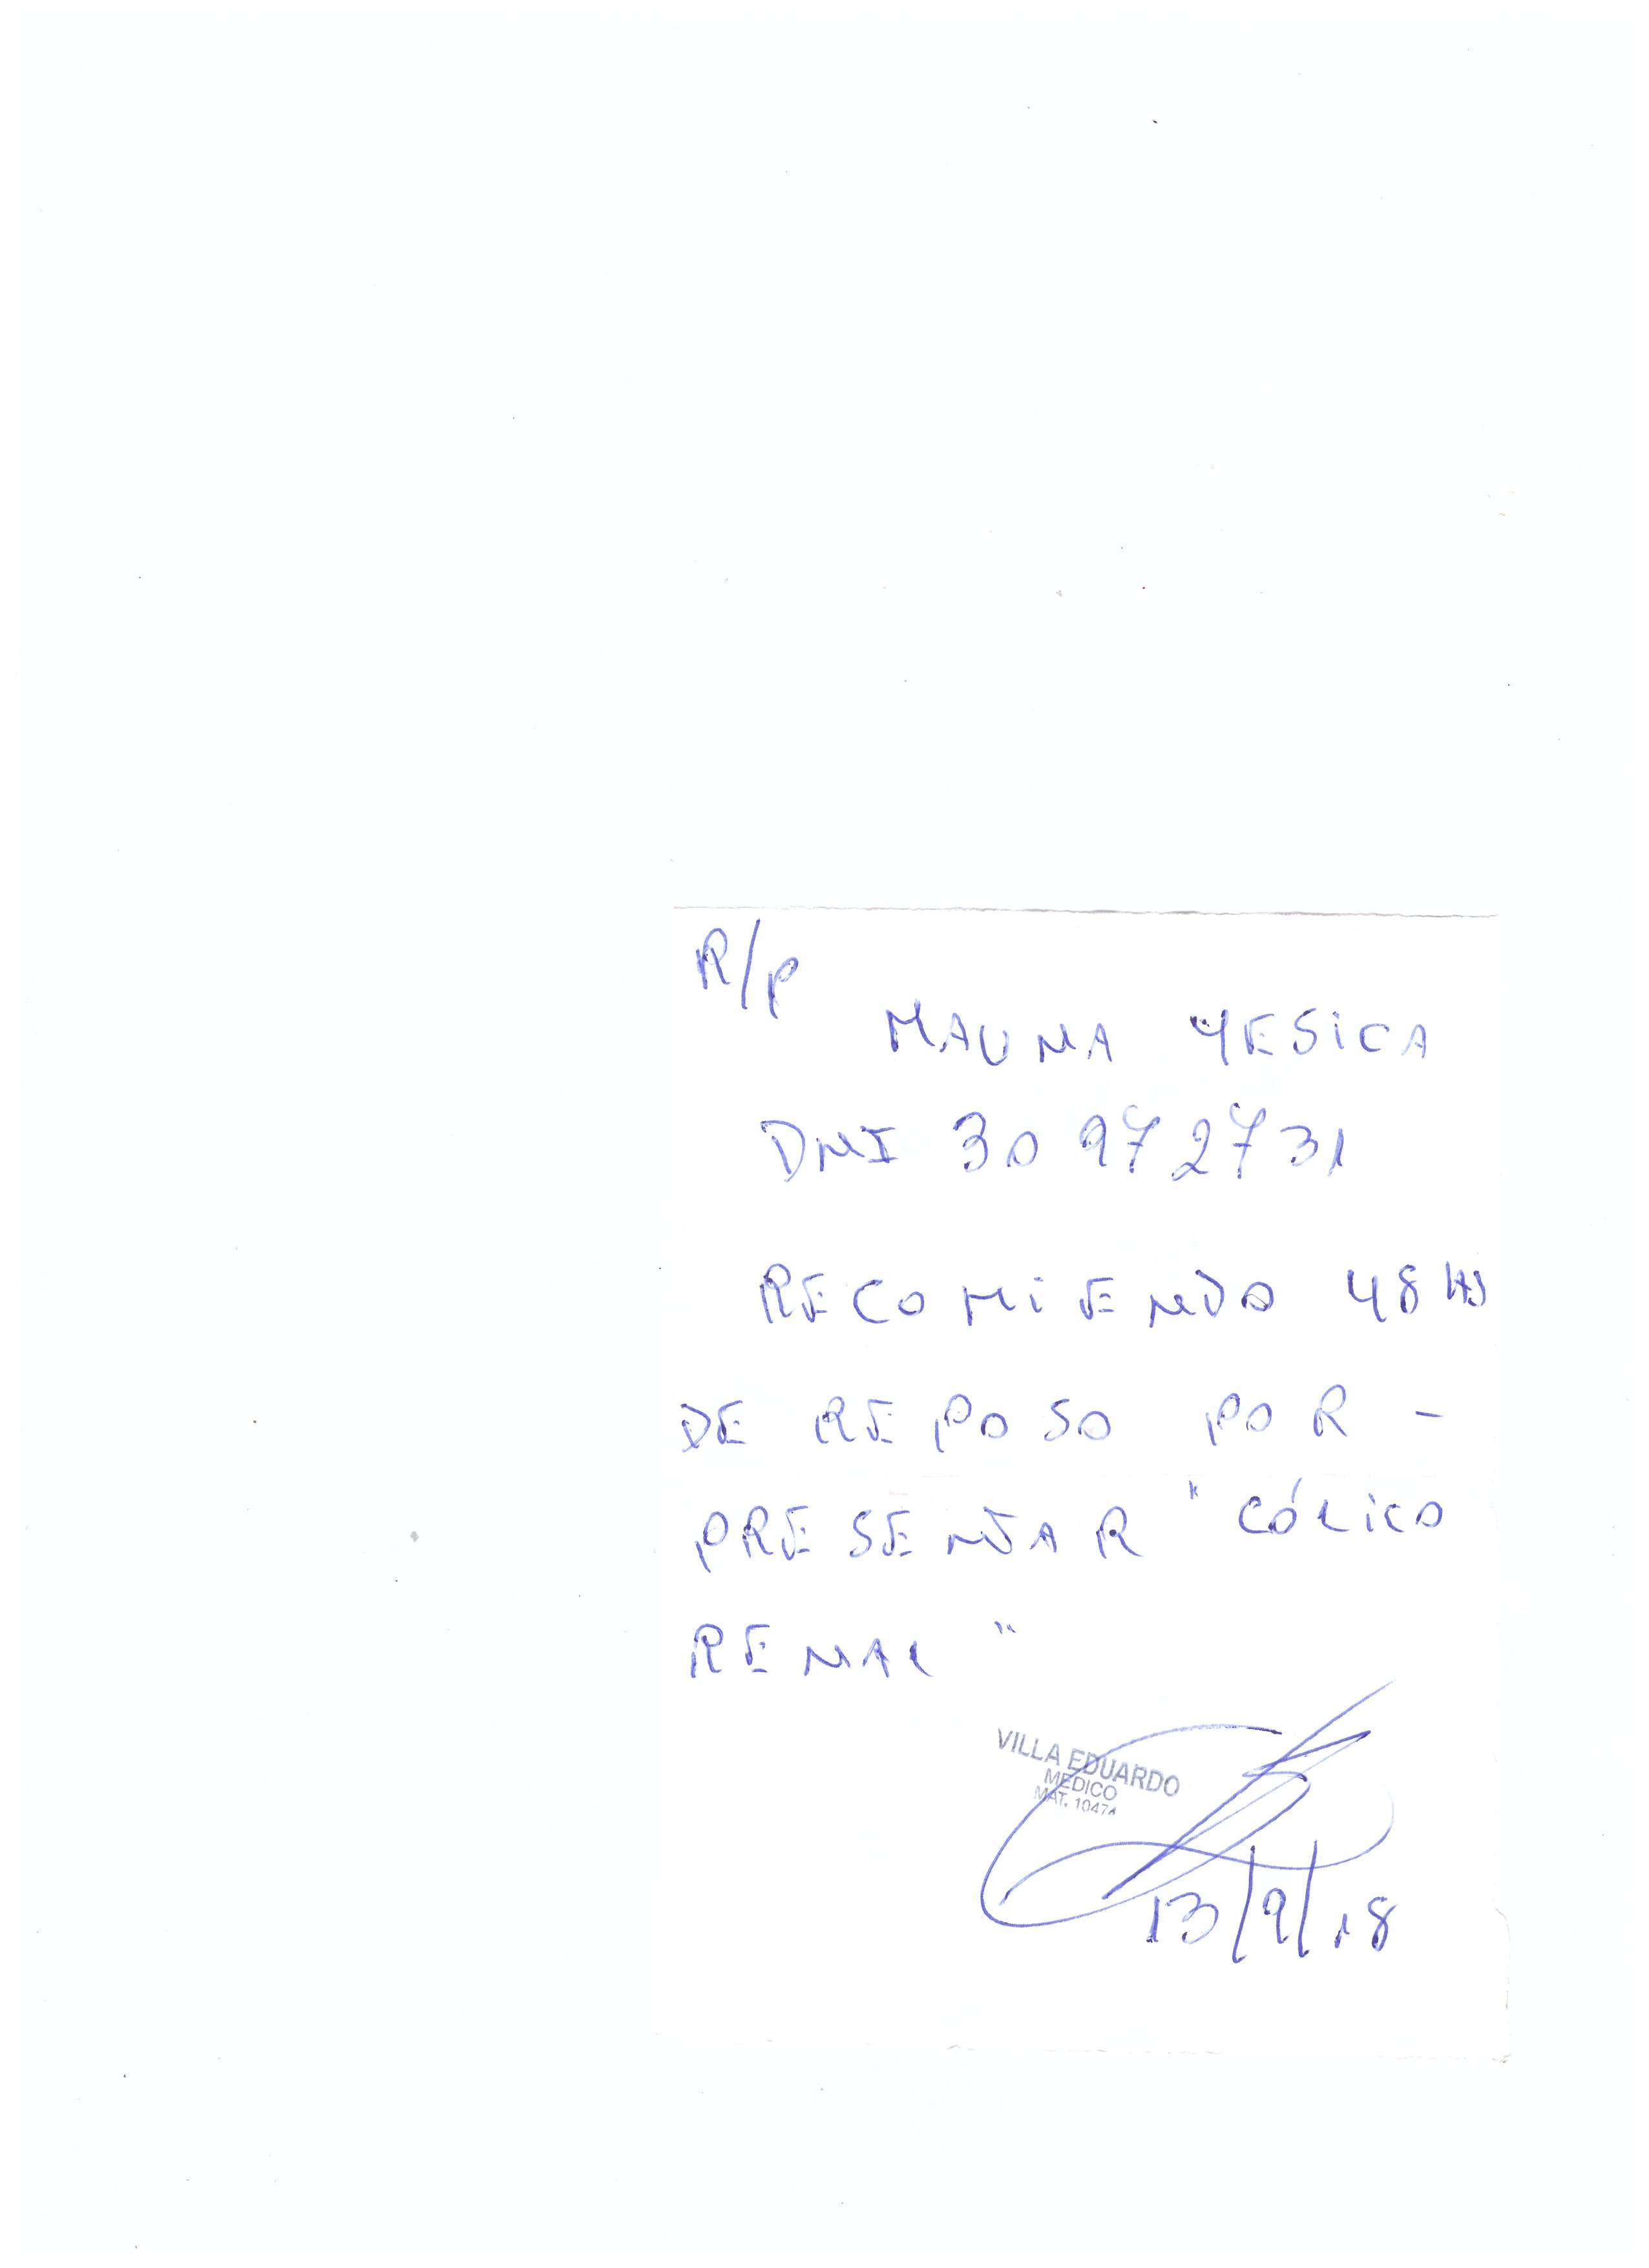 R/P
MAUNA YESICA
DNI 30 972731
RECOMIENDO 48 HS
DE REPOSO POR -
PRESENTAR "CÓLICO
RENAL"
VILLA EDUARDO
MEDICO
MAT. 10474
13/9/18